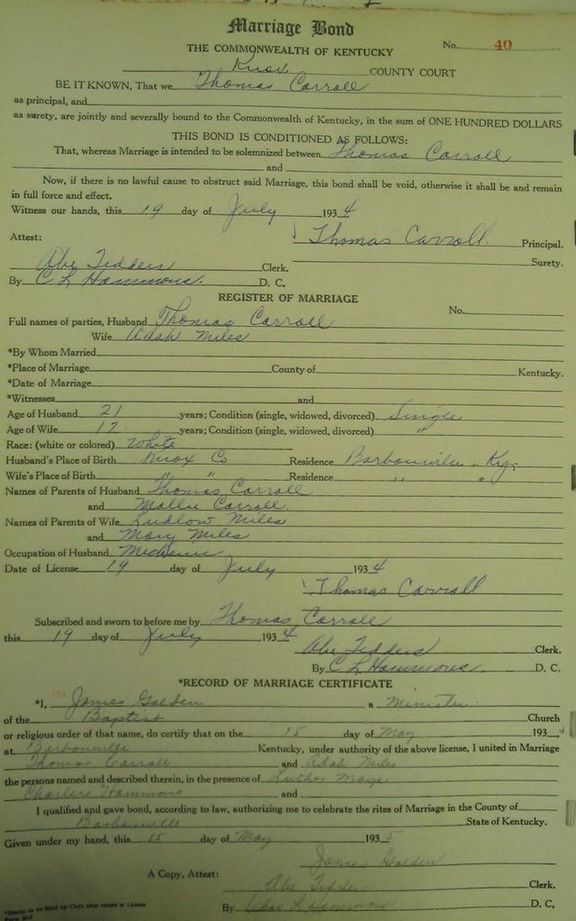 Marriage Bond
THE COMMONWEALTH OF KENTUCKY No. 40
Knox COUNTY COURT
BE IT KNOWN, That we Thomas Carroll
as principal, and
as surety, are jointly and severally bound to the Commonwealth of Kentucky, in the sum of ONE HUNDRED DOLLARS
THIS BOND IS CONDITIONED AS FOLLOWS:
That, whereas Marriage is intended to be solemnized between Thomas Carroll
and
Now, if there is no lawful cause to obstruct said Marriage, this bond shall be void, otherwise it shall be and remain
in full force and effect.
Witness our hands, this 19 day of July 1934
Attest: Thomas Carroll Principal.
Surety.
Abe Tedders Clerk.
By C L Hammons. D. C.
REGISTER OF MARRIAGE
No.
Full names of parties, Husband Thomas Carroll
Wife Adah Miles
*By Whom Married
*Place of Marriage County of Kentucky.
*Date of Marriage
*Witnesses and
Age of Husband 21 years; Condition (single, widowed, divorced) Single
Age of Wife 17 years; Condition (single, widowed, divorced) "
Race: (white or colored) White
Husband's Place of Birth Knox Co Residence Barbourville, Ky.
Wife's Place of Birth " " Residence " "
Names of Parents of Husband Thomas Carroll
and Mollie Carroll
Names of Parents of Wife Ludlow Miles
and Mary Miles
Occupation of Husband Mechanic
Date of License 19 day of July 1934
Thomas Carroll
Subscribed and sworn to before me by Thomas Carroll
this 19 day of July 1934
Abe Tedders Clerk.
By C L Hammons D. C.
*RECORD OF MARRIAGE CERTIFICATE
*I, James Golden a Minister
of the Baptist Church
or religious order of that name, do certify that on the 15 day of May 193
at Barbourville Kentucky, under authority of the above license, I united in Marriage
Thomas Carroll and Adah Miles
the persons named and described therein, in the presence of Luther Mays
Charlers Hammons and
I qualified and gave bond, according to law, authorizing me to celebrate the rites of Marriage in the County of
Barbourville State of Kentucky.
Given under my hand, this 15 day of May 1935
James Golden
A Copy, Attest: Abe Tedders Clerk.
By Chas L Hammons D. C.